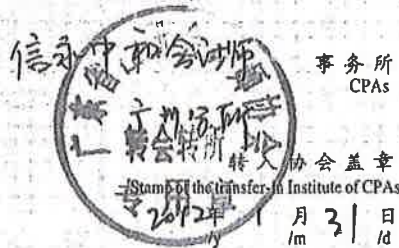 信永中和会计师
事务所
CPAs
广州分所
转会转所
转入协会盖章
Stamp of the transfer-in Institute of CPAs
专用章
2012年 月 31 日
/y /m /d